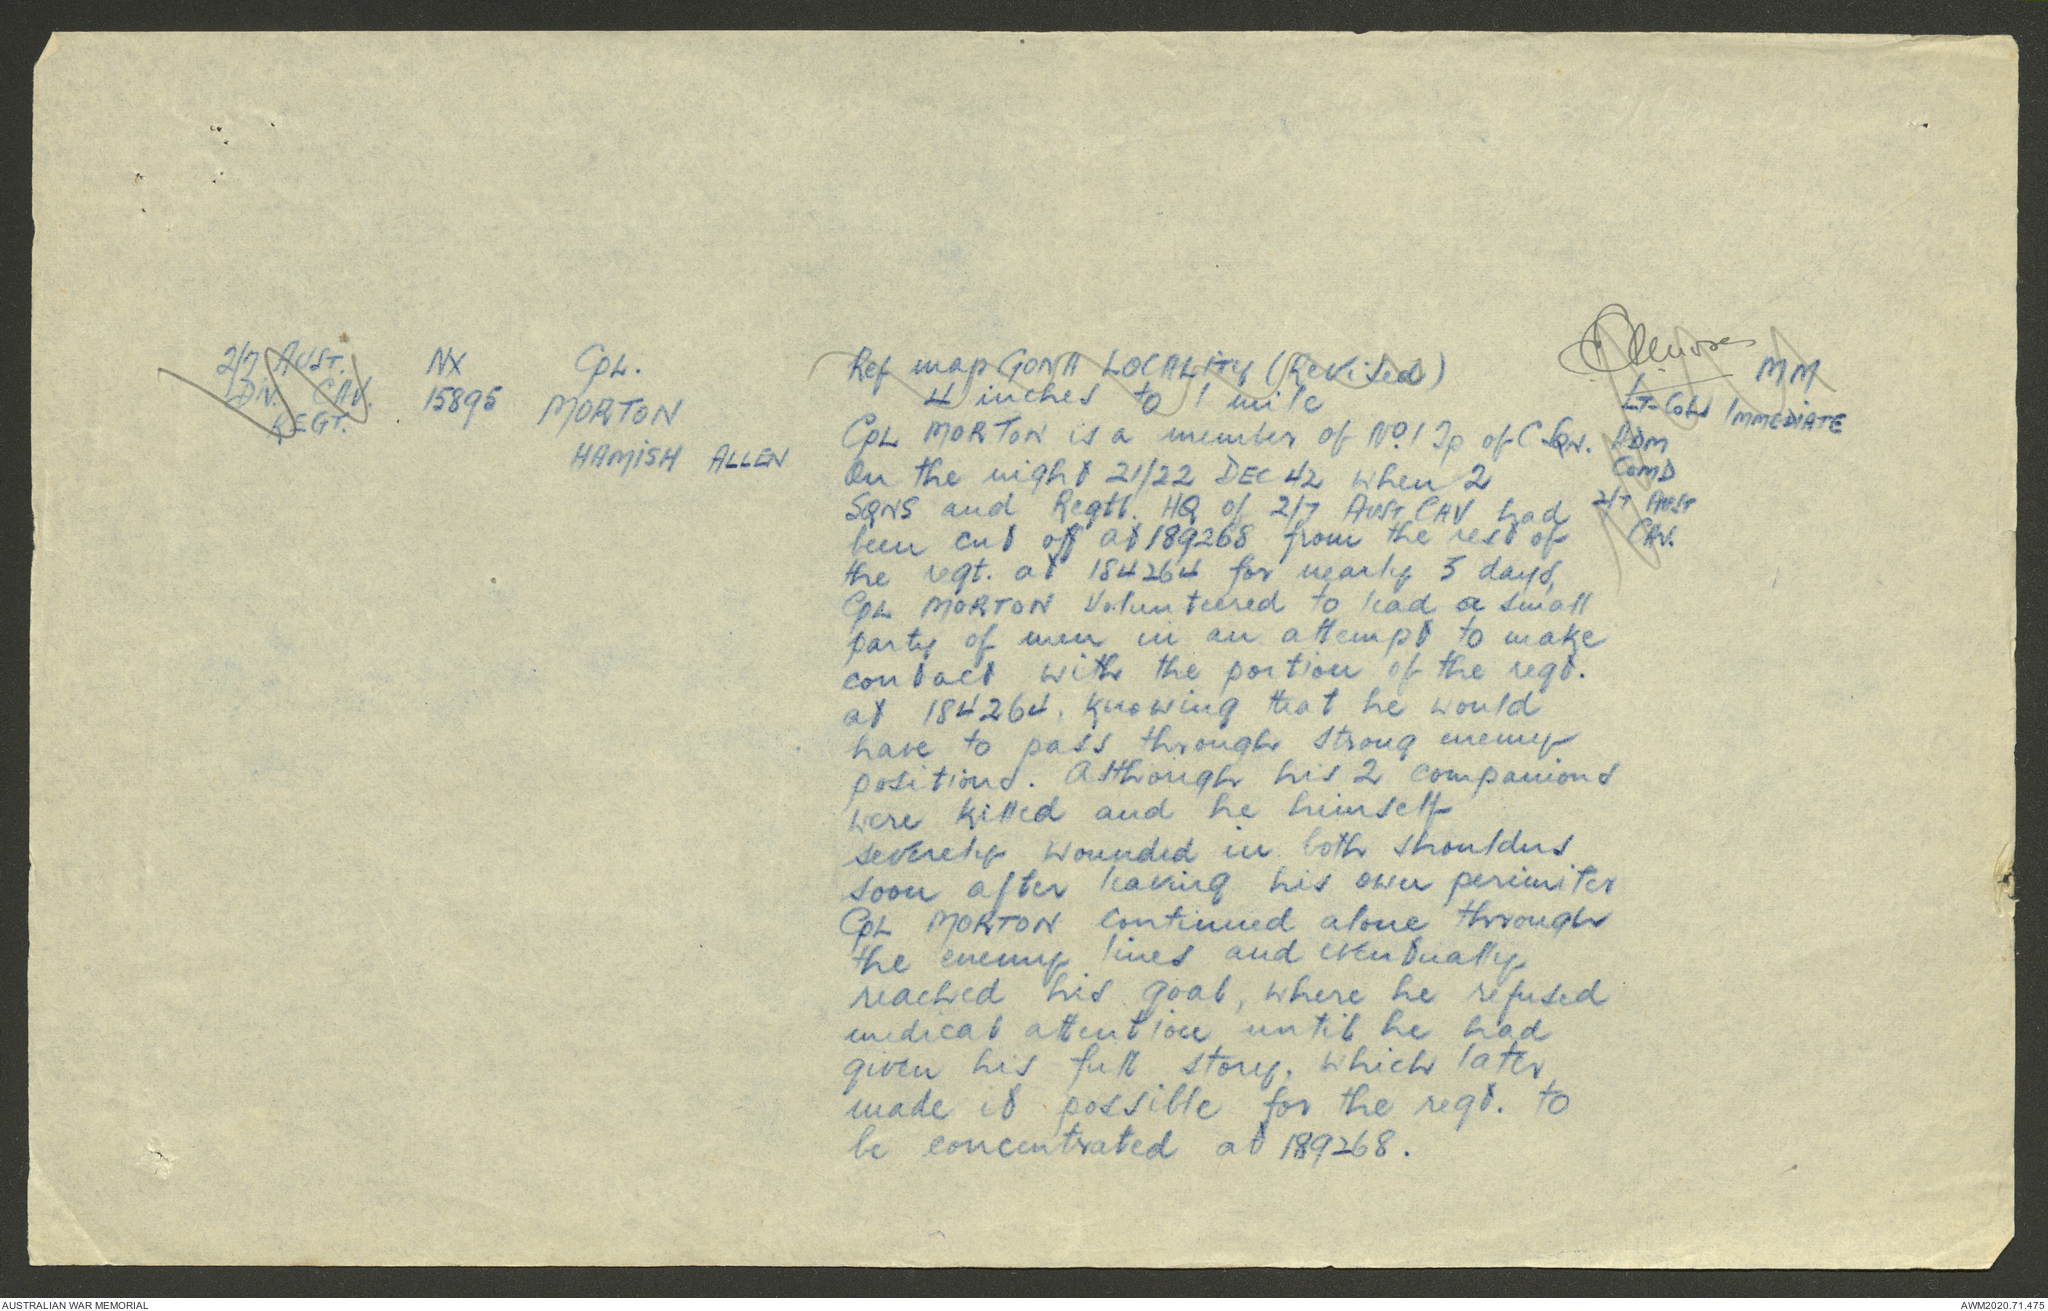 2/7 AUST.
DIV. CAV.
REGT.
NX
15895
CPL.
MORTON
HAMISH ALLEN
Ref map GONA LOCALITY (Revised)
4 inches to 1 mile
CPL MORTON is a member of No. 1 Tp of C SQN.
On the night 21/22 DEC 42 when 2
SQNS and Regtl. HQ of 2/7 AUST CAV had
been cut off at 189268 from the rest of
the regt. at 184264 for nearly 3 days,
CPL MORTON volunteered to lead a small
party of men in an attempt to make
contact with the portion of the regt.
at 184264, knowing that he would
have to pass through strong enemy
positions. Although his 2 companions
were killed and he himself
severely wounded in both shoulders
soon after leaving his own perimiter
CPL MORTON continued alone through
the enemy lines and eventually
reached his goal, where he refused
medical attention until he had
given his full story, which later
made it possible for the regt. to
be concentrated at 189268.
LT-COL
ADM
COMD
2/7 AUST
CAV.
MM
IMMEDIATE
AUSTRALIAN WAR MEMORIAL
AWM2020.71.475